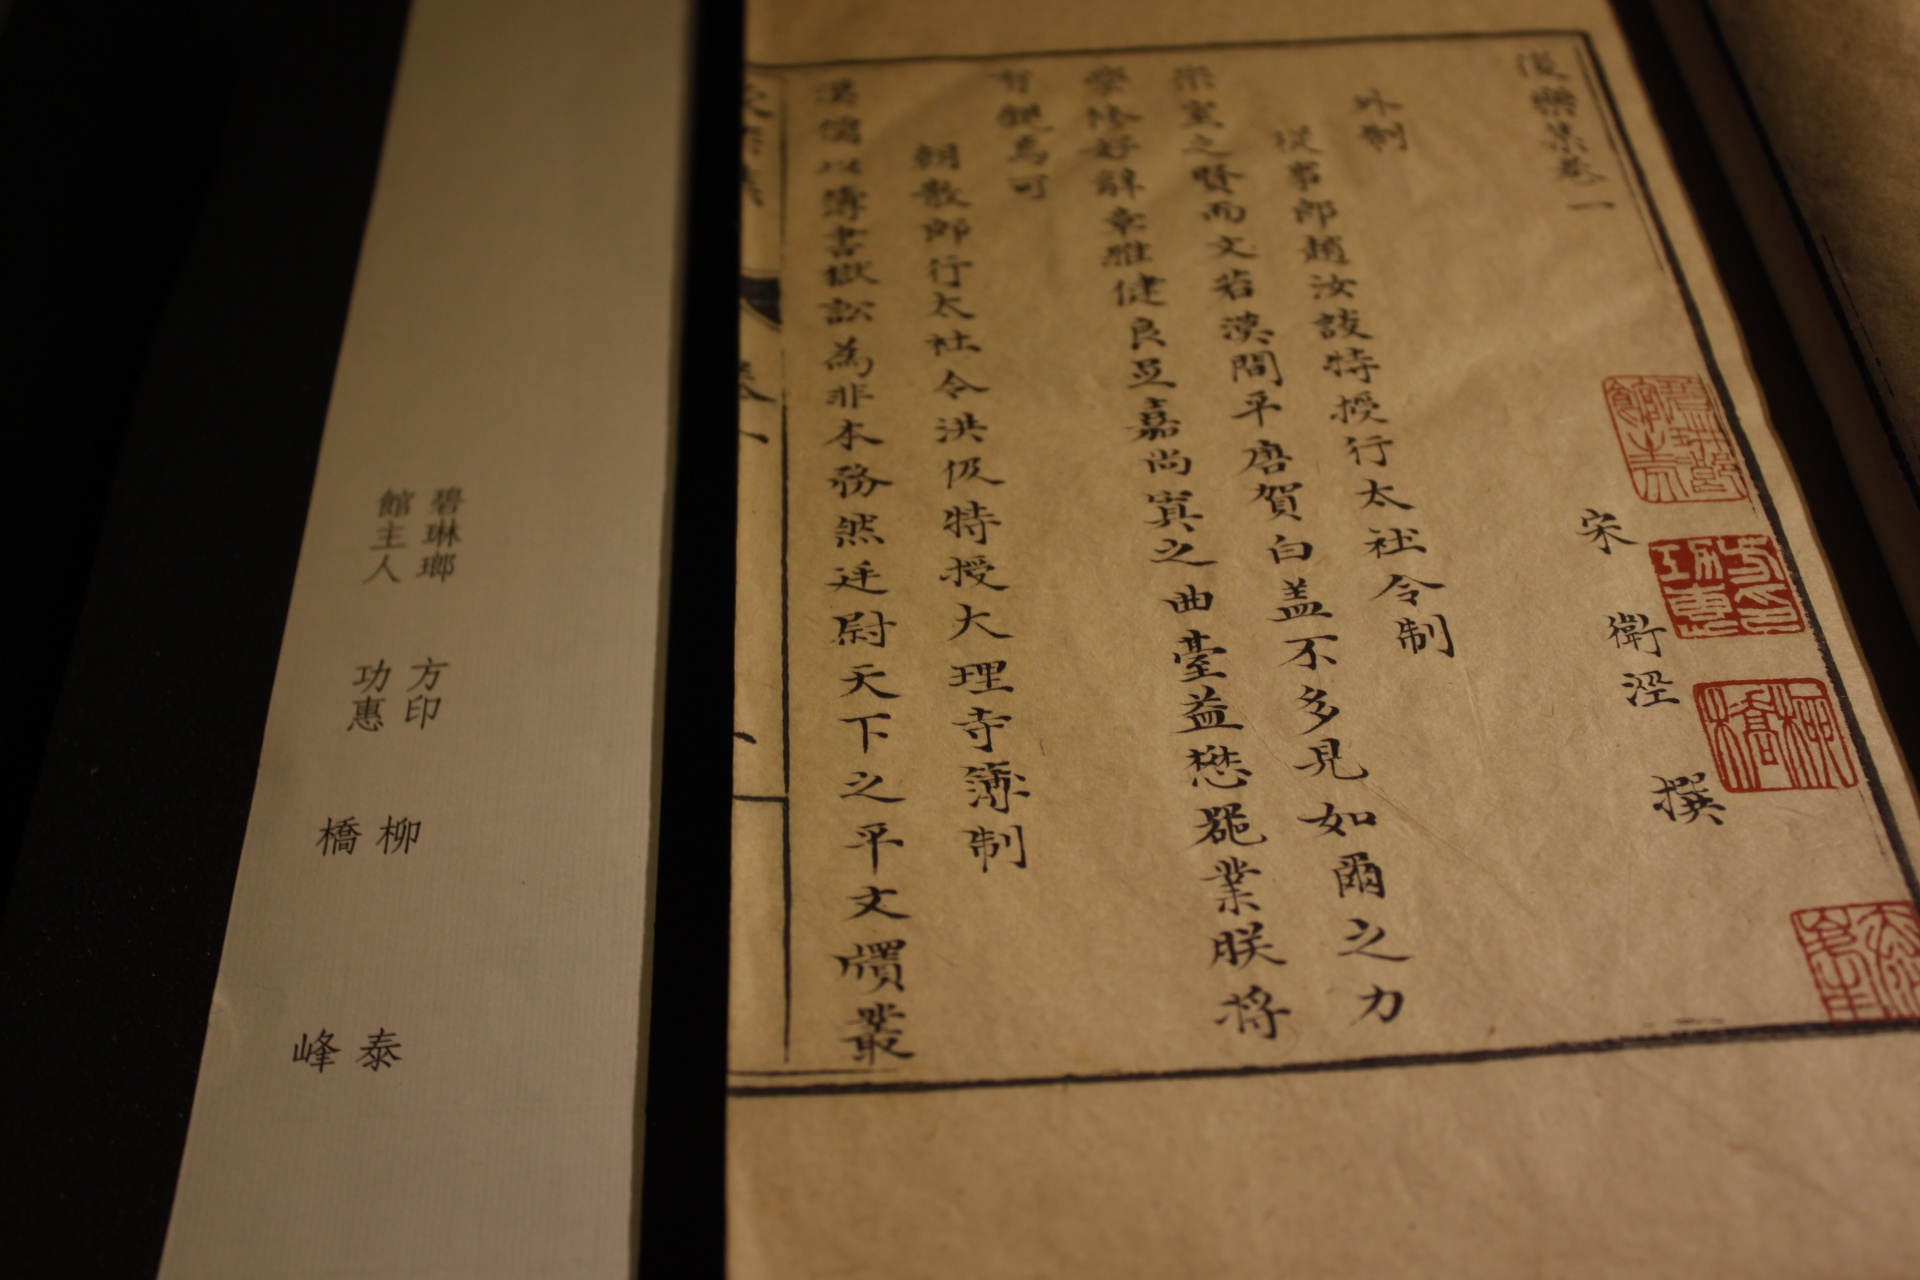 後樂集卷一
宋 衛涇 撰
外制
從事郎趙汝談特授行太社令制
宗室之賢而文若漢間平唐賀白蓋不多見如爾之力
學修好辭章雅健良足嘉尚寘之曲臺益懋罷業朕將
有觀焉可
朝散郎行太社令洪伋特授大理寺簿制
漢儒以簿書獄訟為非本務然廷尉天下之平文牘叢
碧琳瑯
館主人
方印
功惠
柳橋
泰峰